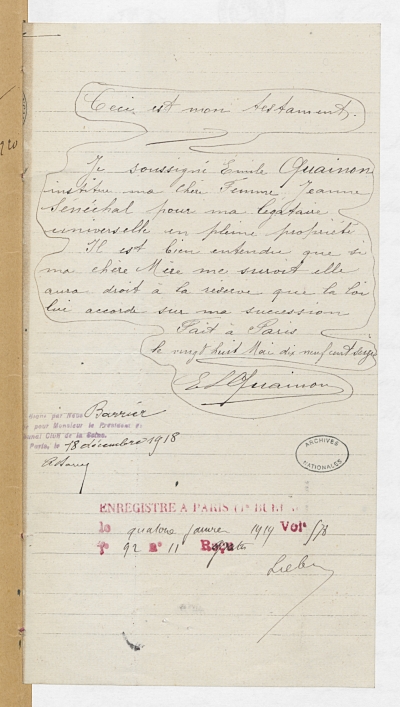 Ceci est mon testament.
Je soussigné Emile Quainon
institue ma chère Femme, Jeanne
Sénéchal pour ma légataire
universelle en pleine propriété
Il est bien entendu que si
ma chère Mère me survit elle
aura droit à la réserve que la loi
lui accorde sur ma succession
Fait à Paris
le vingt huit Mai dix neuf cent seize
E Quainon
par Nous Barrier
pour Monsieur le Président
Civil de la Seine.
Paris, le 18 décembre 1918
ARCHIVES
NATIONALES
ENREGISTRÉ A PARIS
le quatorze janvier 1919 Vol
F° 92 n° 11 Reçu